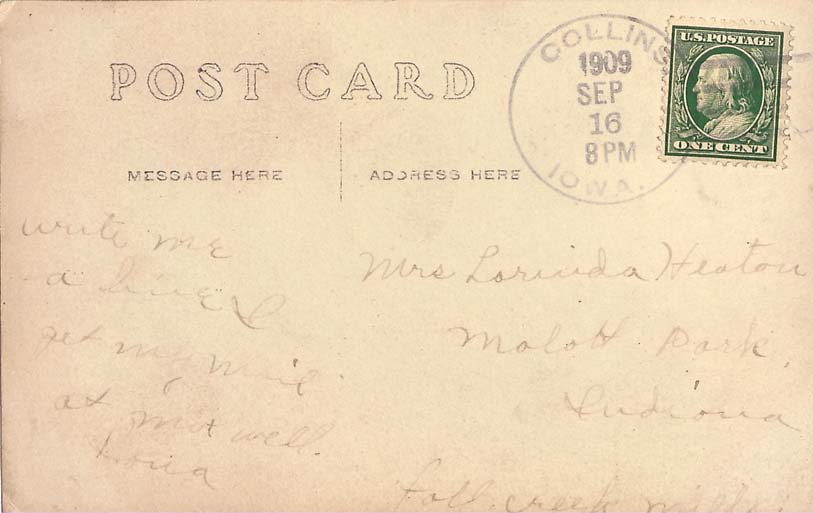 POST CARD
MESSAGE HERE
ADDRESS HERE
COLLINS
1909
SEP
16
8 PM
IOWA.
U.S. POSTAGE
ONE CENT
write me
a line I
get my mail
at Maxwell
Iowa
Mrs Lorinda Heaton
Malott Park,
Indiana
Fall creek